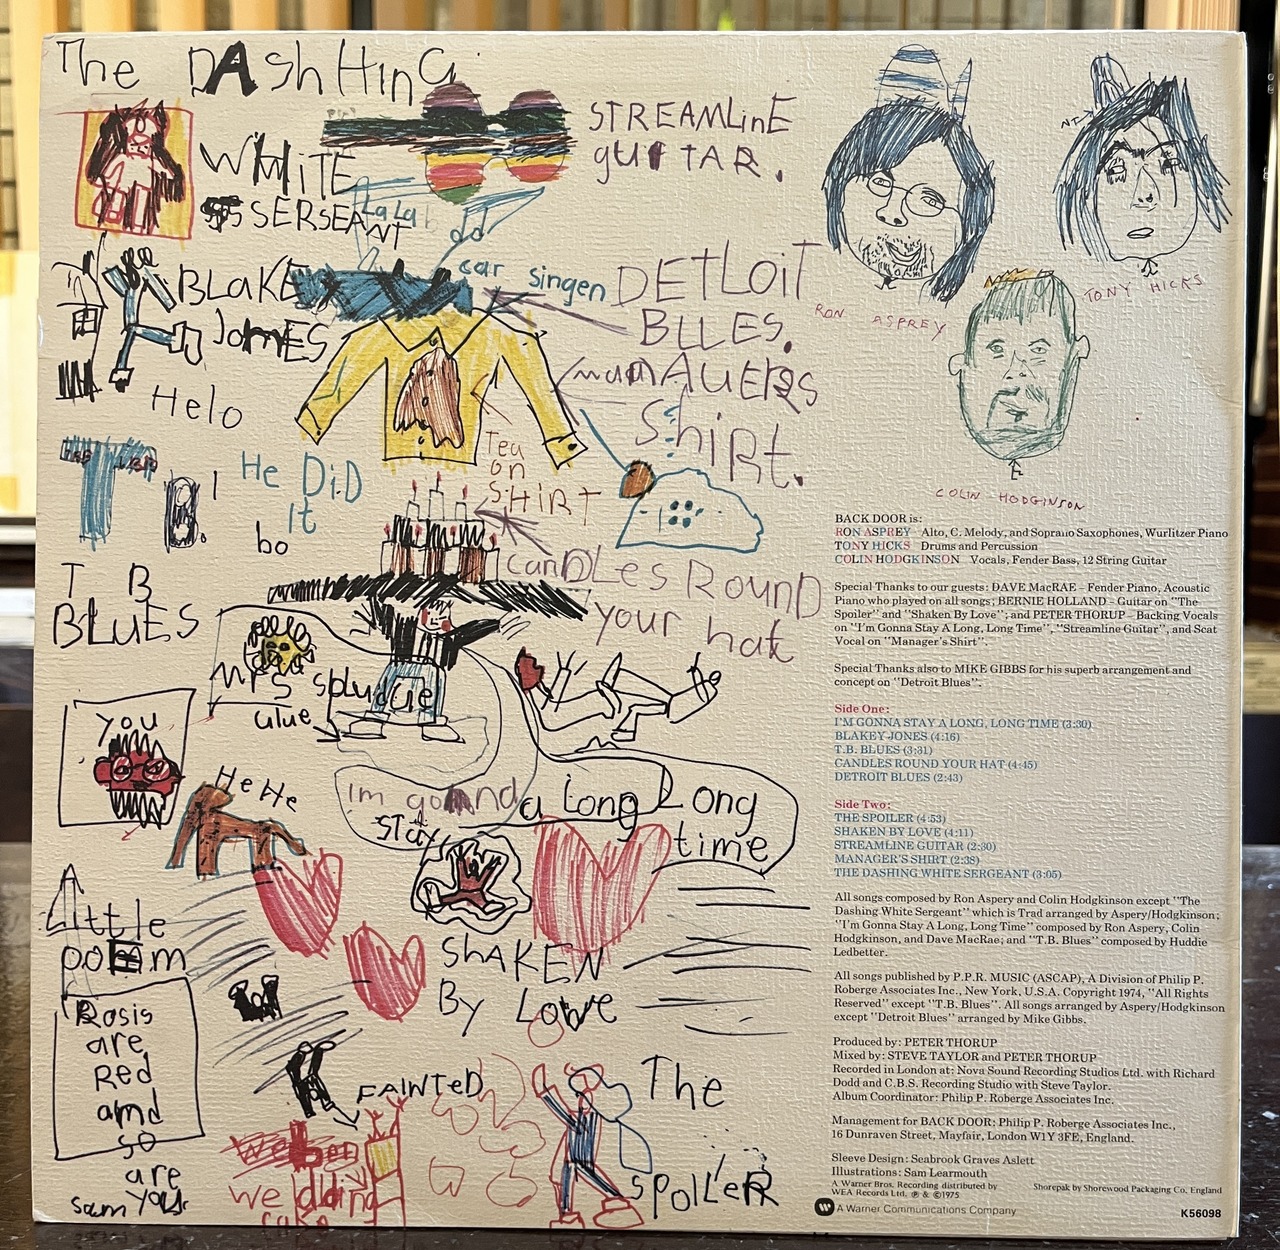 The DASHHING
STREAMLINE
guITAR.
WHITE
SERSEANT
La La L
BLAKE
JOMES
car singen
DETLOIT
BLLES.
mamAUERS
Shirt.
Helo
Tea
on
SHIRT
He DiD
It
bo
T B
BLuES
canDLes RounD
your hat
Mrs spludue
Glue
you
HeHe
Im gonna a Long Long
STay time
A
Little
poem
ShAKEN
By Love
Rosis
are
Red
amd
so
are
you
Sam
FAINTED
wedding
cake
The
spoiLeR
RON ASPREY
TONY HICKS
COLIN HODGINSON
BACK DOOR is:
RON ASPREY Alto, C. Melody, and Soprano Saxophones, Wurlitzer Piano
TONY HICKS Drums and Percussion
COLIN HODGKINSON Vocals, Fender Bass, 12 String Guitar
Special Thanks to our guests: DAVE MacRAE – Fender Piano, Acoustic
Piano who played on all songs; BERNIE HOLLAND – Guitar on "The
Spoiler" and "Shaken By Love"; and PETER THORUP – Backing Vocals
on "I'm Gonna Stay A Long, Long Time", "Streamline Guitar", and Scat
Vocal on "Manager's Shirt".
Special Thanks also to MIKE GIBBS for his superb arrangement and
concept on "Detroit Blues".
Side One:
I'M GONNA STAY A LONG, LONG TIME (3:30)
BLAKEY JONES (4:16)
T.B. BLUES (3:31)
CANDLES ROUND YOUR HAT (4:45)
DETROIT BLUES (2:43)
Side Two:
THE SPOILER (4:53)
SHAKEN BY LOVE (4:11)
STREAMLINE GUITAR (2:30)
MANAGER'S SHIRT (2:38)
THE DASHING WHITE SERGEANT (3:05)
All songs composed by Ron Aspery and Colin Hodgkinson except "The
Dashing White Sergeant" which is Trad arranged by Aspery/Hodgkinson;
"I'm Gonna Stay A Long, Long Time" composed by Ron Aspery, Colin
Hodgkinson, and Dave MacRae; and "T.B. Blues" composed by Huddie
Ledbetter.
All songs published by P.P.R. MUSIC (ASCAP), A Division of Philip P.
Roberge Associates Inc., New York, U.S.A. Copyright 1974, "All Rights
Reserved" except "T.B. Blues". All songs arranged by Aspery/Hodgkinson
except "Detroit Blues" arranged by Mike Gibbs.
Produced by: PETER THORUP
Mixed by: STEVE TAYLOR and PETER THORUP
Recorded in London at: Nova Sound Recording Studios Ltd. with Richard
Dodd and C.B.S. Recording Studio with Steve Taylor.
Album Coordinator: Philip P. Roberge Associates Inc.
Management for BACK DOOR: Philip P. Roberge Associates Inc.,
16 Dunraven Street, Mayfair, London W1Y 3FE, England.
Sleeve Design: Seabrook Graves Aslett
Illustrations: Sam Learmouth
A Warner Bros. Recording distributed by
WEA Records Ltd. ℗ & ©1975
Shorepak by Shorewood Packaging Co. England
A Warner Communications Company
K56098